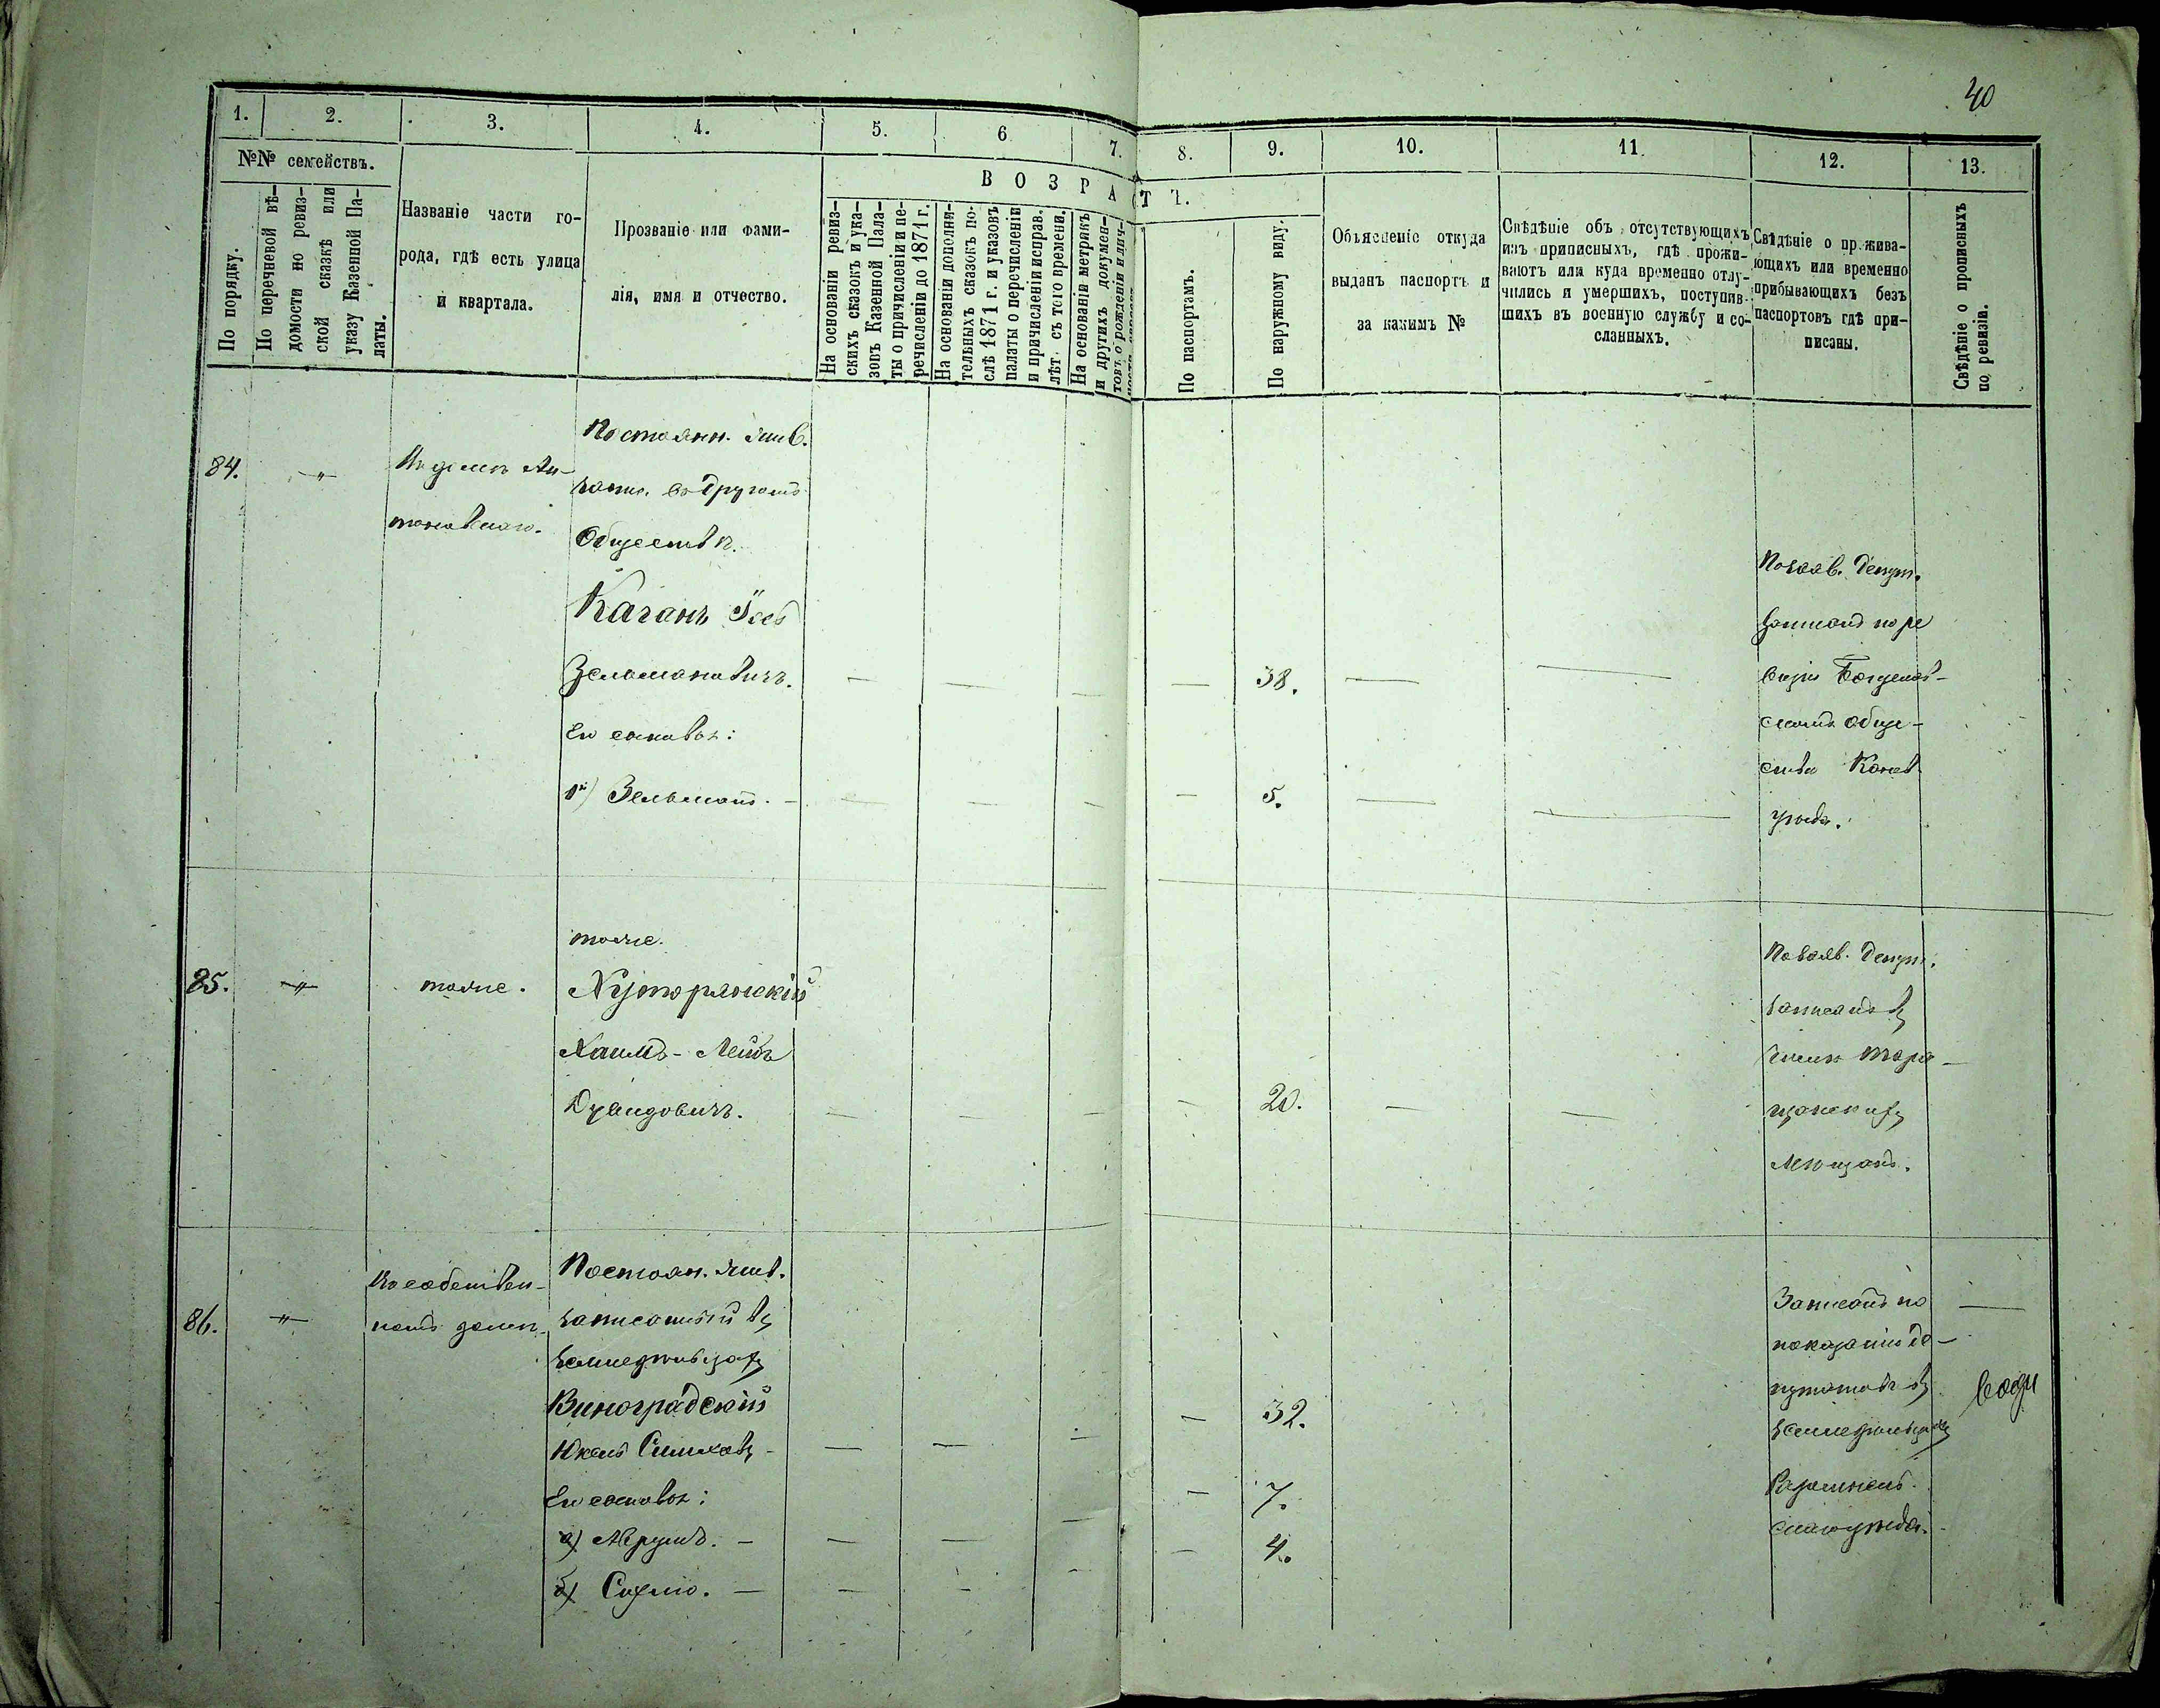 40
1. 2. 3. 4. 5. 6 7. 8. 9. 10. 11. 12. 13.
№№ семействъ.
По порядку.
По перечневой вѣ-
домости но ревиз-
ской сказкѣ или
указу Казенной Па-
латы.
Названіе части го-
рода, гдѣ есть улица
и квартала.
Прозваніе или фами-
лія, имя и отчество.
ВОЗРАСТЪ.
На основаніи ревиз-
скихъ сказокъ и ука-
зовъ Казенной Пала-
ты о причисленіи и пе-
речисленіи до 1871 г.
На основаніи дополни-
тельныхъ сказокъ по-
слѣ 1871 г. и указовъ
палаты о перечисленіи
и причисленіи исправ.
лѣт. съ того времени.
На основаніи метрикъ
и другихъ докумен-
товъ о рожденіи и лич-
По паспортамъ.
По наружному виду.
Объясненіе откуда
выданъ паспортъ и
за какимъ №
Свѣдѣніе объ отсутствующихъ
изъ приписныхъ, гдѣ прожи-
ваютъ или куда временно отлу-
чились и умершихъ, поступив-
шихъ въ военную службу и со-
сланныхъ.
Свѣдѣніе о прожива-
ющихъ или временно
прибывающихъ безъ
паспортовъ гдѣ при-
писаны.
Свѣдѣніе о прописныхъ
по ревизіи.
84. "
Въ домѣ Ан-
тоновскаго.
Постоянн. жив.
запис. въ другомъ
Обществѣ.
Каганъ
Зельмановичъ. — — — — 38. — —
Его сыновья:
1й) Зельманъ. — — — — — 5. — —
Позаяв. депут.
записанъ по ре
визіи Богуслав-
скаго обще-
ства Канев.
уѣзда.
85. " тоже.
тоже.
Хуторянскій
Хаимъ-Лейба
Дувидовичъ. — — — — 20. — —
Позаяв. депут.
записанъ въ
числѣ Тара-
щанскихъ
мѣщанъ.
86. "
Въ собствен-
номъ домѣ.
Постоян. жив.
записанный въ
земледѣльцахъ
Виноградскій
Юкель — — — — 32.
Его сыновья:
а) Аврумъ. — — — — — 7.
б) — — — — — 4.
Записанъ по
показанію де-
путатовъ въ
земледѣльцахъ